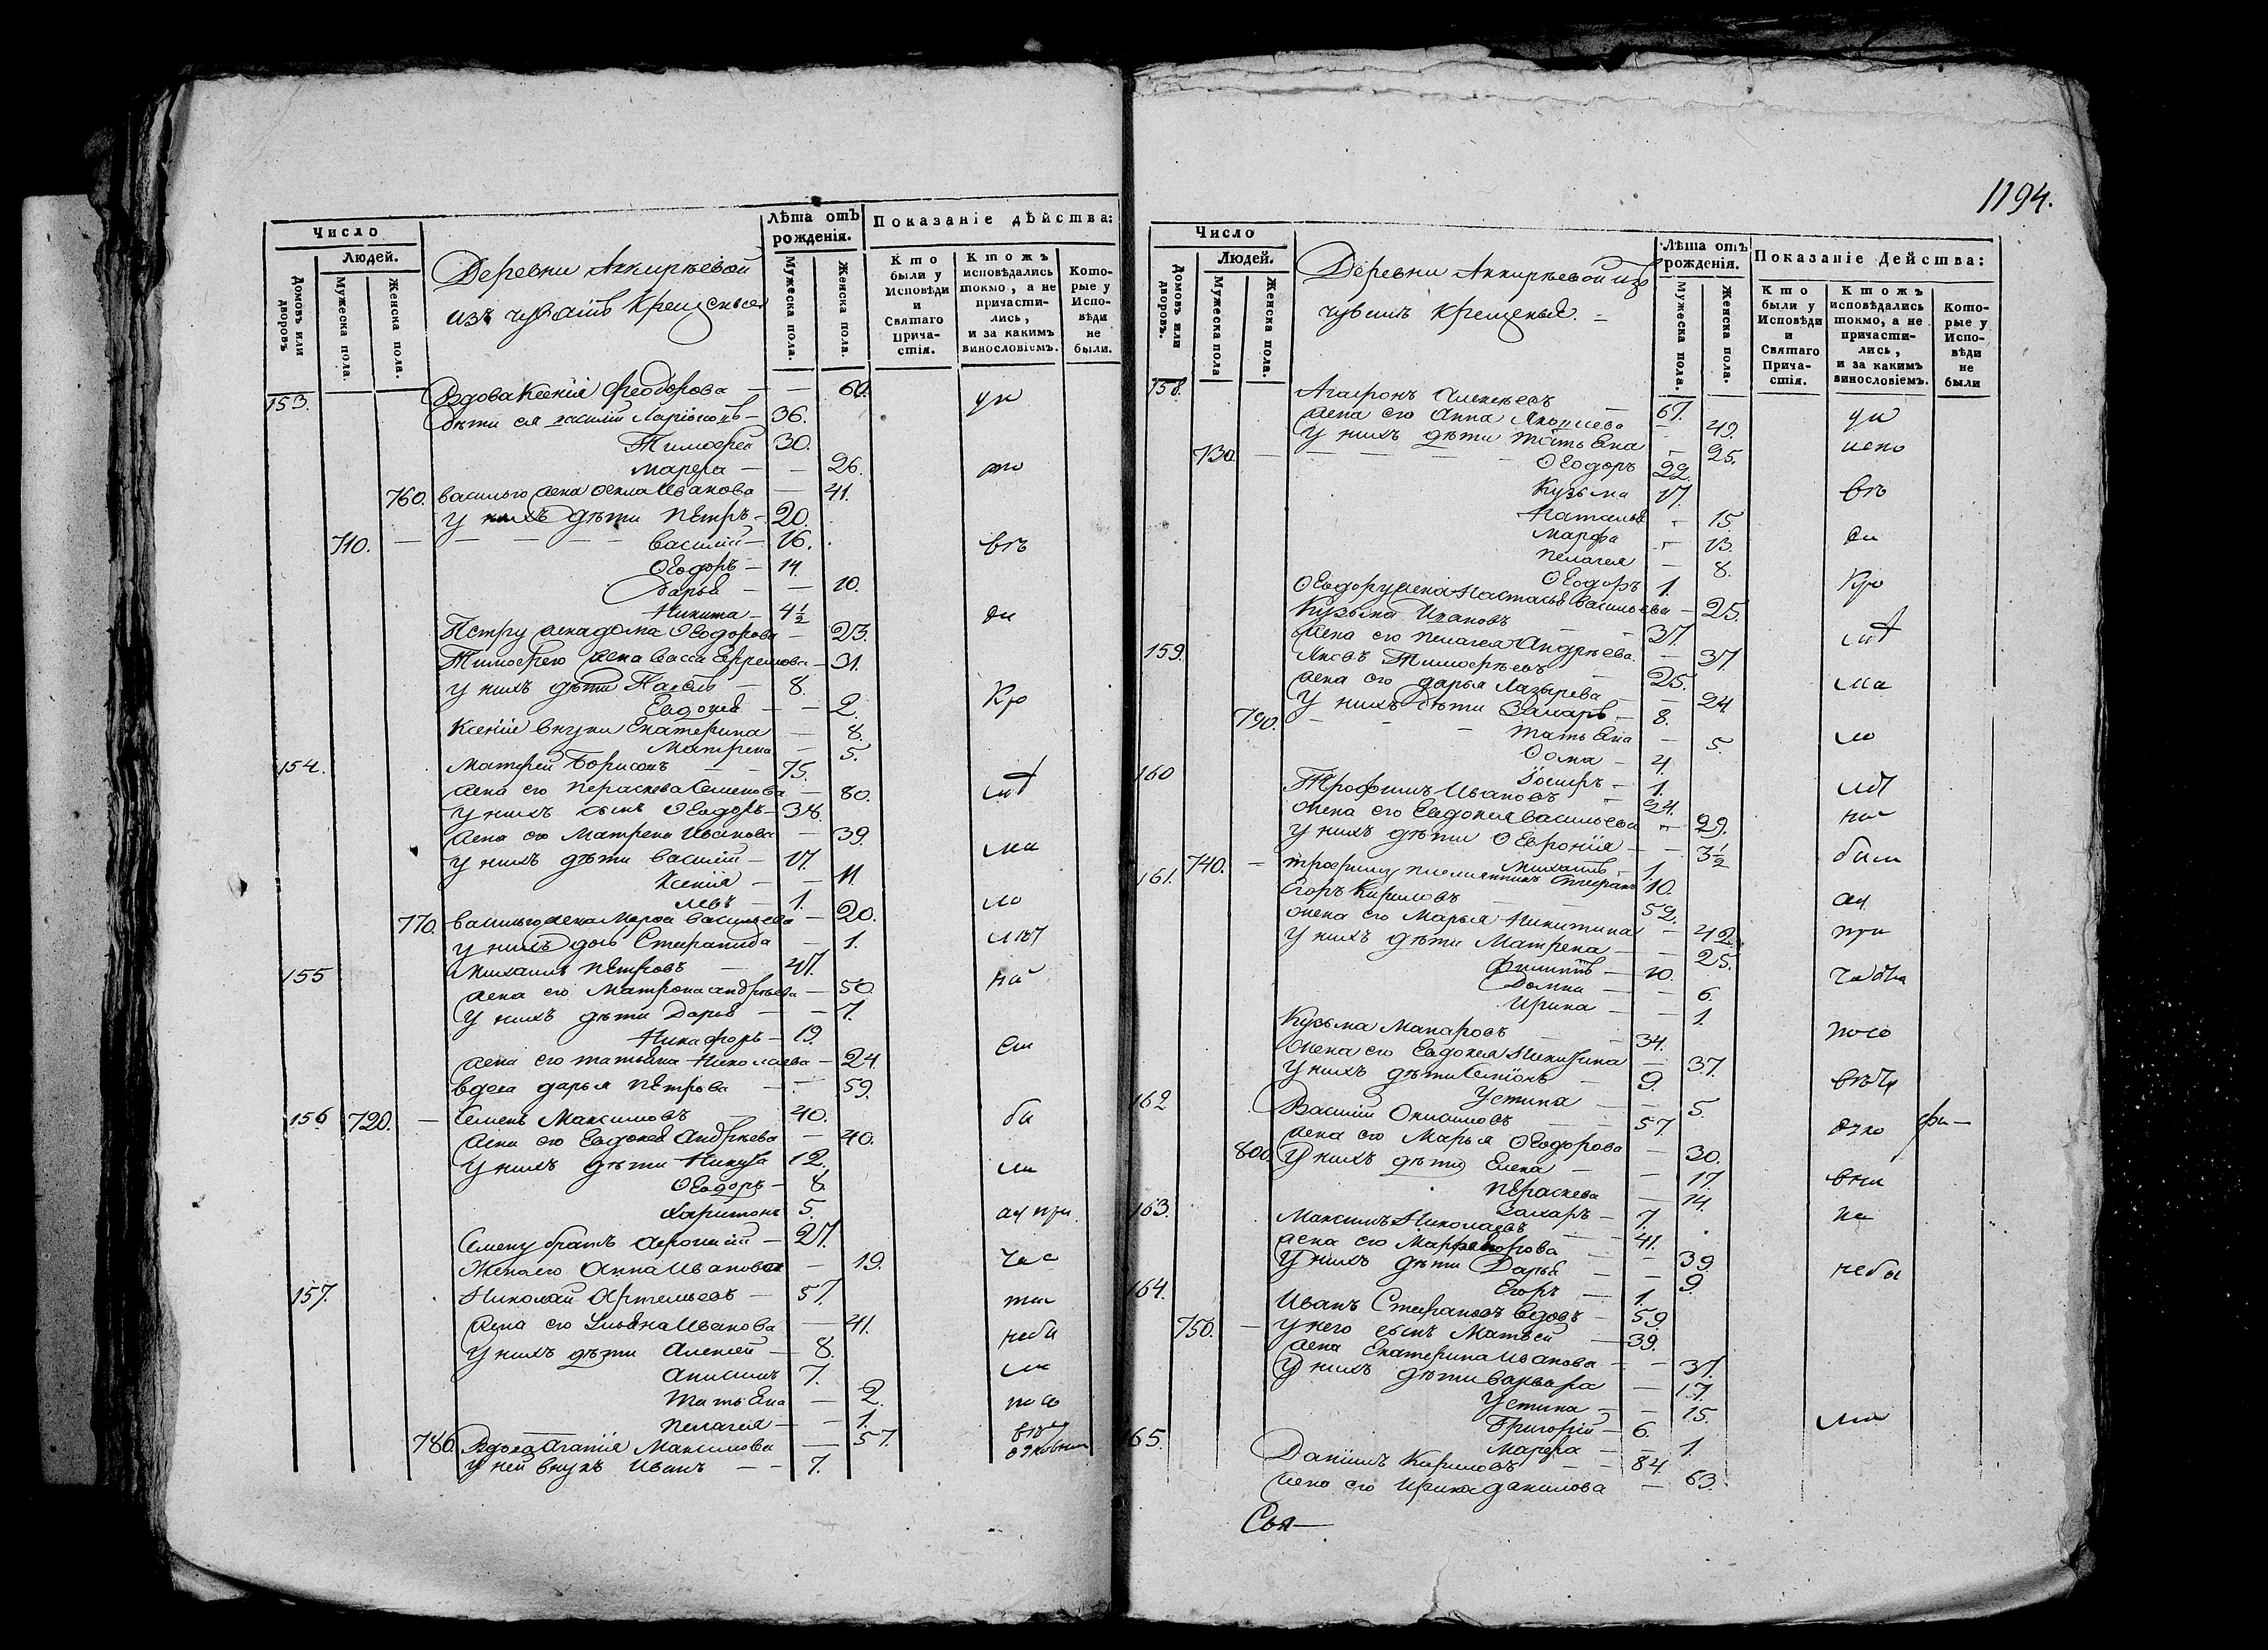 1194.
Число
Лѣта отъ рожденія.
Показаніе дѣйства:
Людей.
Домовъ или дворовъ
Мужеска пола.
Женска пола.
Деревни Аккирѣевой
изъ чувашъ крещеныя
Мужеска пола.
Женска пола.
Кто были у Исповѣди и Святаго Причастія.
Ктожъ исповѣдались токмо, а не причастились, и за какимъ винословіемъ.
Которые у Исповѣди не были.
153. Вдова Ксенія Феодорова — — 60.
дѣти ея василій Ларіоновъ — 36.
Тимофей 30.
марфа — — 26.
760. василью жена Фекла Иванова — 41.
у нихъ дѣти пЕтръ — 20.
710. — василій — 16.
Ѳеодоръ — 14.
дарья — — 10.
Никита — 4½
Петру жена домна Ѳеодорова — 23.
Тимофею жена васса Ефремова — 31.
у нихъ дѣти Павелъ — 8.
Евдокея — — 2.
Ксеніи внуки Екатерина — 8.
Матрена — 5.
154. Матфей Борисовъ — — 75.
жена его пераскева Семенова — 80.
у нихъ сынъ Ѳеодоръ — 38.
жена его Матрена Иванова — 39.
у нихъ дѣти василій — 17.
Ксенія — — 11.
левъ — 1.
770. васильюжена Марфа васильева — 20.
у нихъ дочь Стефанида — 1.
155 Михаилъ пЕтровъ — 47.
жена его Матрона андрѣева — 50.
у нихъ дѣти Дарья — — 7.
Никифоръ — 19.
жена его татьяна Николаева — 24.
вдова дарья пЕтрова — — 59.
156 720. — Семенъ Максимовъ — 40.
жена его Евдокея Андрѣева — 40.
у нихъ дѣти Никита 12.
Ѳеодоръ — 8.
Харитонъ 5.
Семену братъ Афонасій — 27.
Жена его Анна Иванова — 19.
157. Николай Артемьевъ — 57.
жена его Ульяна Иванова — 41.
у нихъ дѣти Алексей — 8.
Анисимъ 7.
татьЕна — 2.
пелагея — — 1.
780. Вдова Агапія Максимова — 57.
у ней внукъ Иванъ — — 7.
Число
Лѣта отъ рожденія.
Показаніе Действа:
Людей.
Домовъ или дворовъ.
Мужеска пола
Женска пола.
Деревни Аккирѣевой изъ
чувашъ крещеныя. =
Мужеска пола.
Женска пола.
Кто были у Исповѣди и Святаго Причастія.
Ктожъ исповѣдались токмо, а не причастились, и за какимъ винословіемъ.
Которые у Исповѣди не были
158. Агафонъ Алексѣевъ — 67.
жена его Анна Яковлева — 49.
у нихъ дѣти татьЕна — 25.
730. — Ѳеодоръ 22.
Кузьма 17.
Наталья — 15.
Марфа — 13.
пелагея — 8.
Ѳеодоръ 1.
Ѳеодору жена Настасья васильева — 25.
Кузьма Ивановъ — 37.
жена его пелагея Андрѣева. — 37.
159. Яковъ Тимофѣевъ 25.
жена его дарья Лазырева — 24.
790. у нихъ дѣти Захаръ — 8.
татьЕна — 5.
Ѳома — 4.
— 1.
160 Трофимъ Ивановъ — 24.
жена его Евдокея васильева — 29.
у нихъ дѣти Ѳевронія — — 3½
740. — Михаилъ — 1.
трофиму племянникъ Стефанъ 10.
161. Егоръ Кириловъ — — 52.
жена его Марья Никитина — 42.
у нихъ дѣти Матрена — 25.
Филиппъ — 10.
Домна — — 6.
Ирина — — 1.
Кузьма Макаровъ — 34.
жена его Евдокея Никитина — 37.
у нихъ дѣти Семіонъ — 9.
Устина — — 5.
162 Василій Онисимовъ — 57.
жена его Марья Ѳеодорова — 30.
800 у нихъ дѣти Елена — — 17.
пЕраскева — 14.
Захаръ — 7.
163. Максимъ Николаевъ — 41.
жена его — 39.
у нихъ дѣти Дарья — — 9.
Егоръ — 1.
164. Иванъ Стефановъ вдовъ — 59.
750. — у него сынъ Матвей — 39.
жена Екатерина Иванова — — 37.
у нихъ дѣти варвара — 17.
Устина — — 15.
Григорій — 6.
марфа — — 1.
65. Даніилъ Кириловъ — — 84.
жена его Ирина данилова — 63.